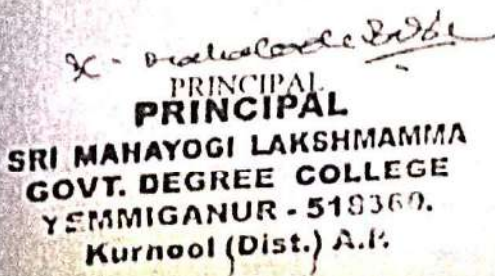 PRINCIPAL
PRINCIPAL
SRI MAHAYOGI LAKSHMAMMA
GOVT. DEGREE COLLEGE
YEMMIGANUR - 518360.
Kurnool (Dist.) A.P.